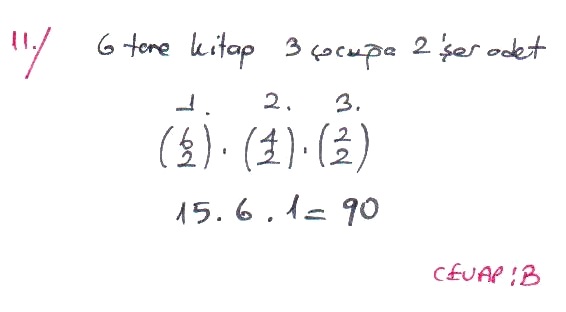 11./ 6 tane kitap 3 çocuğa 2'şer adet
1. 2. 3.
(6 2) . (4 2) . (2 2)
15 . 6 . 1 = 90
CEVAP : B